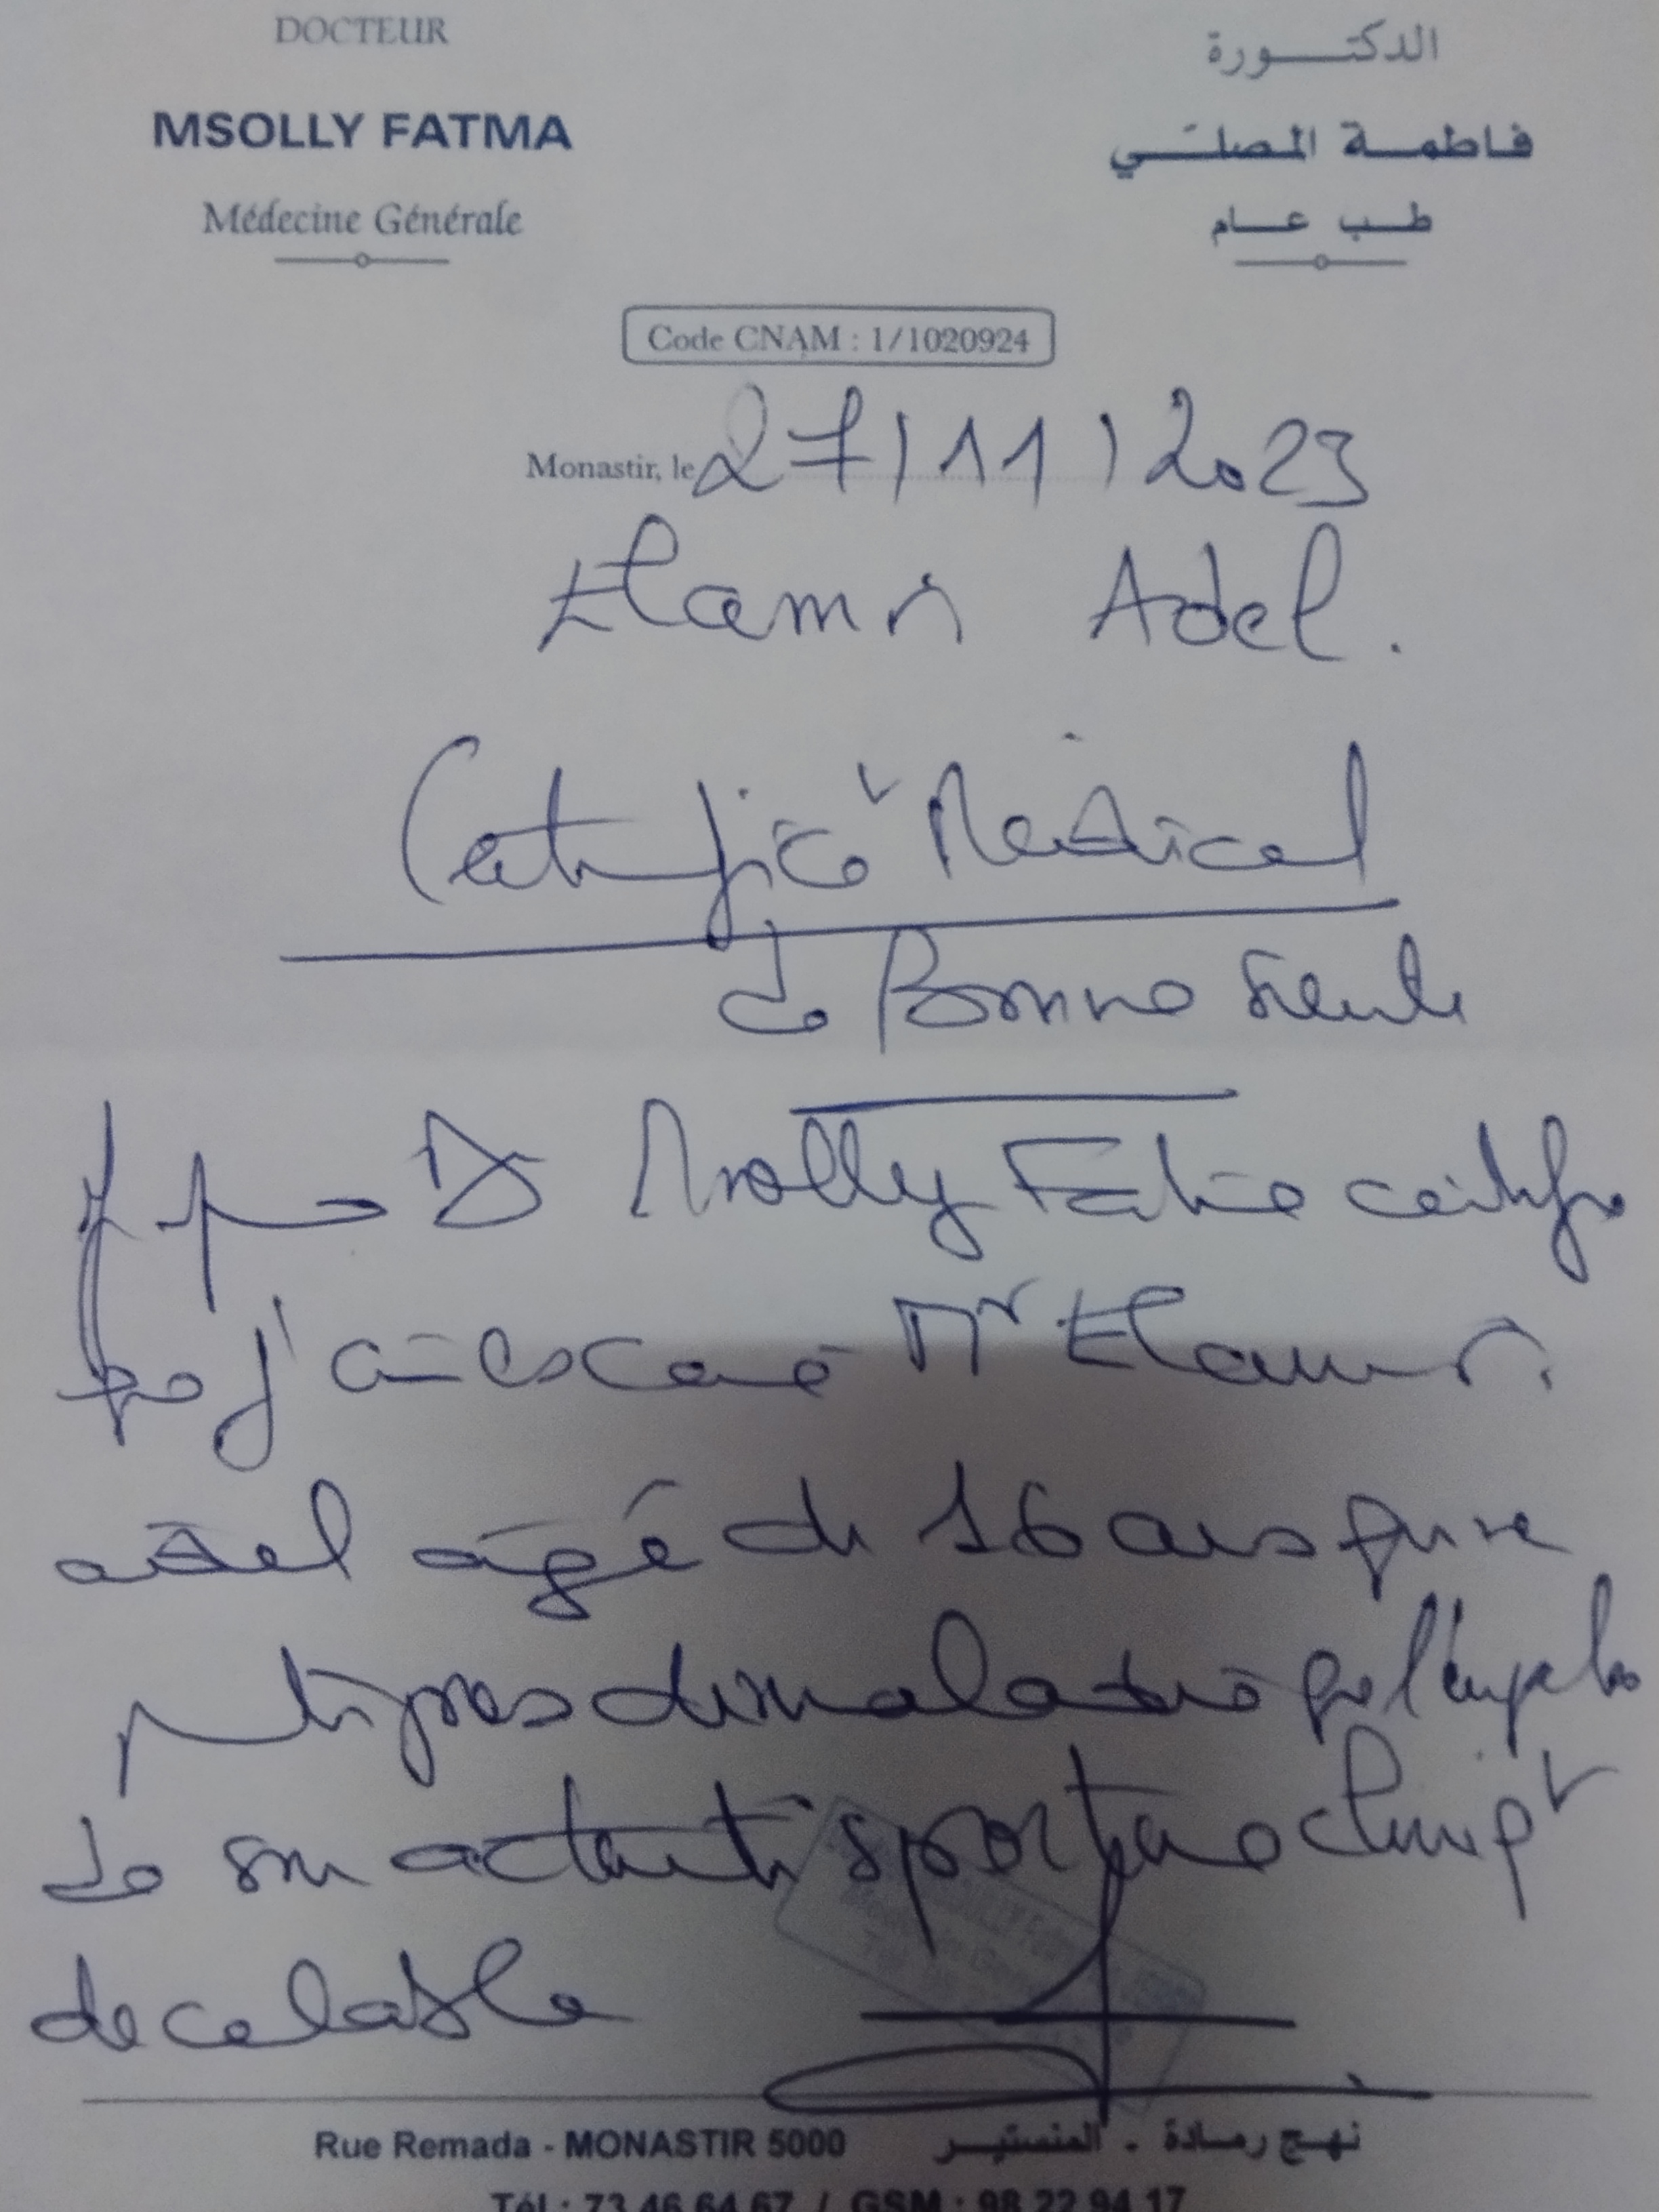 DOCTEUR
MSOLLY FATMA
Médecine Générale
الدكتورة
فاطمة المصلّي
طب عام
Code CNAM : 1/1020924
Monastir, le 27/11/2023
Elamri Adel.
Certificat Medical
de Bonne Santé
Dr Msolly Fatma certifie
que j'ai examiné Mr Elamri
adel agé de 16 ans
de maladie
de son sportive
decelable
Rue Remada - MONASTIR 5000
نهج رمادة - المنستير
Tél : 73 46 64 67 / GSM : 98 22 94 17